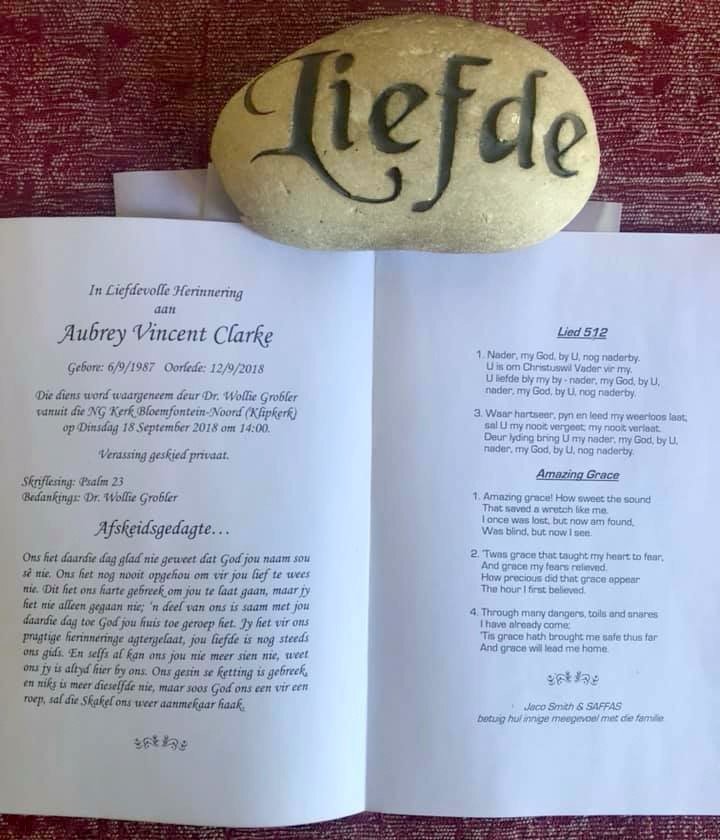 Liefde
In Liefdevolle Herinnering
aan
Aubrey Vincent Clarke
Gebore: 6/9/1987 Oorlede: 12/9/2018
Die diens word waargeneem deur Dr. Wollie Grobler
vanuit die NG Kerk Bloemfontein-Noord (Klipkerk)
op Dinsdag 18 September 2018 om 14:00.
Verassing geskied privaat.
Skriflesing: Psalm 23
Bedankings: Dr. Wollie Grobler
Afskeidsgedagte…
Ons het daardie dag glad nie geweet dat God jou naam sou
sê nie. Ons het nog nooit opgehou om vir jou lief te wees
nie. Dit het ons harte gebreek om jou te laat gaan, maar jy
het nie alleen gegaan nie; 'n deel van ons is saam met jou
daardie dag toe God jou huis toe geroep het. Jy het vir ons
pragtige herinneringe agtergelaat, jou liefde is nog steeds
ons gids. En selfs al kan ons jou nie meer sien nie, weet
ons jy is altyd hier by ons. Ons gesin se ketting is gebreek,
en niks is meer dieselfde nie, maar soos God ons een vir een
roep, sal die Skakel ons weer aanmekaar haak.
Lied 512
1. Nader, my God, by U, nog naderby.
U is om Christuswil Vader vir my.
U liefde bly my by - nader, my God, by U,
nader, my God, by U, nog naderby.
3. Waar hartseer, pyn en leed my weerloos laat,
sal U my nooit vergeet; my nooit verlaat.
Deur lyding bring U my nader, my God, by U,
nader, my God, by U, nog naderby.
Amazing Grace
1. Amazing grace! How sweet the sound
That saved a wretch like me.
I once was lost, but now am found,
Was blind, but now I see.
2. 'Twas grace that taught my heart to fear,
And grace my fears relieved.
How precious did that grace appear
The hour I first believed.
4. Through many dangers, toils and snares
I have already come;
'Tis grace hath brought me safe thus far
And grace will lead me home.
Jaco Smith & SAFFAS
betuig hul innige meegevoel met die familie